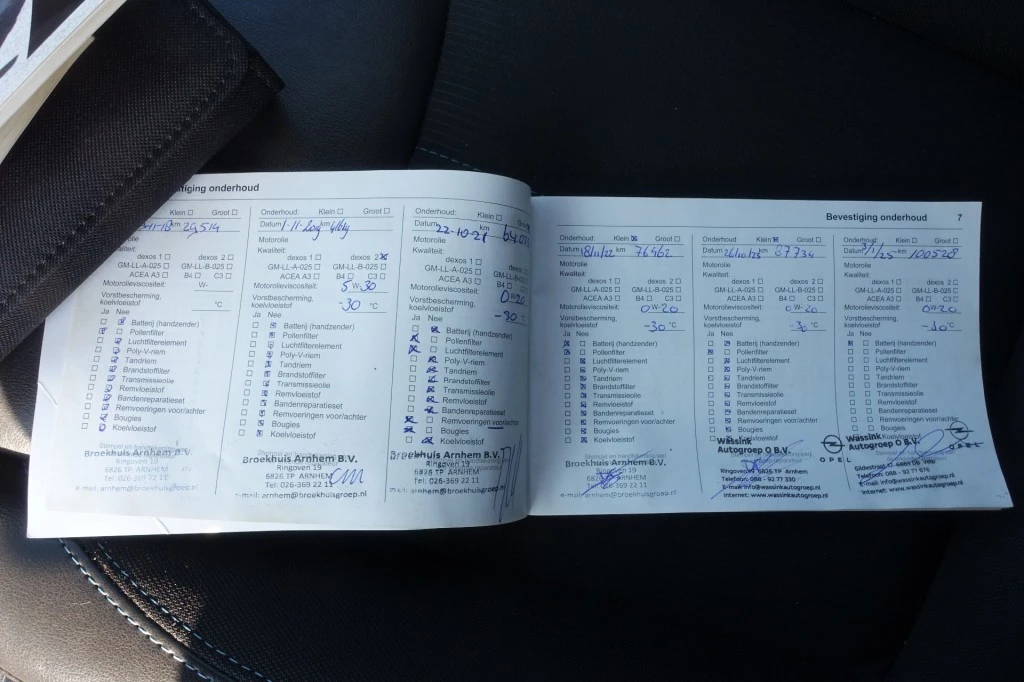 tiging onderhoud
Klein Groot
km 29514
Kwaliteit:
dexos 1 dexos 2
GM-LL-A-025 GM-LL-B-025
ACEA A3 B4 C3
Motorolieviscositeit: W-
Vorstbescherming,
koelvloeistof °C
Ja Nee
Batterij (handzender)
Pollenfilter
Luchtfilterelement
Poly-V-riem
Tandriem
Brandstoffilter
Transmissieolie
Remvloeistof
Bandenreparatieset
Remvoeringen voor/achter
Bougies
Koelvloeistof
Broekhuis Arnhem B.V.
Ringoven 19
6826 TP ARNHEM
Tel: 026-369 22 11
e-mail: arnhem@broekhuisgroep.nl
Onderhoud: Klein Groot
Datum km
Motorolie
Kwaliteit:
dexos 1 dexos 2
GM-LL-A-025 GM-LL-B-025
ACEA A3 B4 C3
Motorolieviscositeit: 5 W-30
Vorstbescherming,
koelvloeistof -30 °C
Ja Nee
Batterij (handzender)
Pollenfilter
Luchtfilterelement
Poly-V-riem
Tandriem
Brandstoffilter
Transmissieolie
Remvloeistof
Bandenreparatieset
Remvoeringen voor/achter
Bougies
Koelvloeistof
Broekhuis Arnhem B.V.
Ringoven 19
6826 TP ARNHEM
Tel: 026-369 22 11
e-mail: arnhem@broekhuisgroep.nl
Onderhoud: Klein
Datum 22-10-21 km
Motorolie
Kwaliteit:
dexos 1
GM-LL-A-025
ACEA A3 B4
Motorolieviscositeit: 0W20
Vorstbescherming,
koelvloeistof -30 °C
Ja Nee
Batterij (handzender)
Pollenfilter
Luchtfilterelement
Poly-V-riem
Tandriem
Brandstoffilter
Transmissieolie
Remvloeistof
Bandenreparatieset
Remvoeringen voor/achter
Bougies
Koelvloeistof
Broekhuis Arnhem B.V.
Ringoven 19
6826 TP ARNHEM
Tel: 026-369 22 11
e-mail: arnhem@broekhuisgroep.nl
Bevestiging onderhoud 7
Onderhoud: Klein Groot
Datum 18/11/22 km 76962
Motorolie
Kwaliteit:
dexos 1 dexos 2
GM-LL-A-025 GM-LL-B-025
ACEA A3 B4 C3
Motorolieviscositeit: 0W-20
Vorstbescherming,
koelvloeistof -30 °C
Ja Nee
Batterij (handzender)
Pollenfilter
Luchtfilterelement
Poly-V-riem
Tandriem
Brandstoffilter
Transmissieolie
Remvloeistof
Bandenreparatieset
Remvoeringen voor/achter
Bougies
Koelvloeistof
Broekhuis Arnhem B.V.
Ringoven 19
6826 TP ARNHEM
Tel: 026-369 22 11
e-mail: arnhem@broekhuisgroep.nl
Onderhoud: Klein Groot
Datum 26/10/23 km 87734
Motorolie
Kwaliteit:
dexos 1 dexos 2
GM-LL-A-025 GM-LL-B-025
ACEA A3 B4 C3
Motorolieviscositeit: 0W-20
Vorstbescherming,
koelvloeistof -30 °C
Ja Nee
Batterij (handzender)
Pollenfilter
Luchtfilterelement
Poly-V-riem
Tandriem
Brandstoffilter
Transmissieolie
Remvloeistof
Bandenreparatieset
Remvoeringen voor/achter
Bougies
Koelvloeistof
Wassink
Autogroep O B.V.
OPEL
Ringoven 19 6826 TP Arnhem
Telefoon: 088 - 93 77 330
E-mail: info@wassinkautogroep.nl
Internet: www.wassinkautogroep.nl
Onderhoud: Klein Groot
Datum km 100528
Motorolie
Kwaliteit:
dexos 1 dexos 2
GM-LL-A-025 GM-LL-B-025
ACEA A3 B4 C3
Motorolieviscositeit: 0W-20
Vorstbescherming,
koelvloeistof -30 °C
Ja Nee
Batterij (handzender)
Pollenfilter
Luchtfilterelement
Poly-V-riem
Tandriem
Brandstoffilter
Transmissieolie
Remvloeistof
Bandenreparatieset
Remvoeringen voor/achter
Bougies
Koelvloeistof
Wassink
Autogroep O B.V.
OPEL
E-mail: info@wassinkautogroep.nl
Internet: www.wassinkautogroep.nl